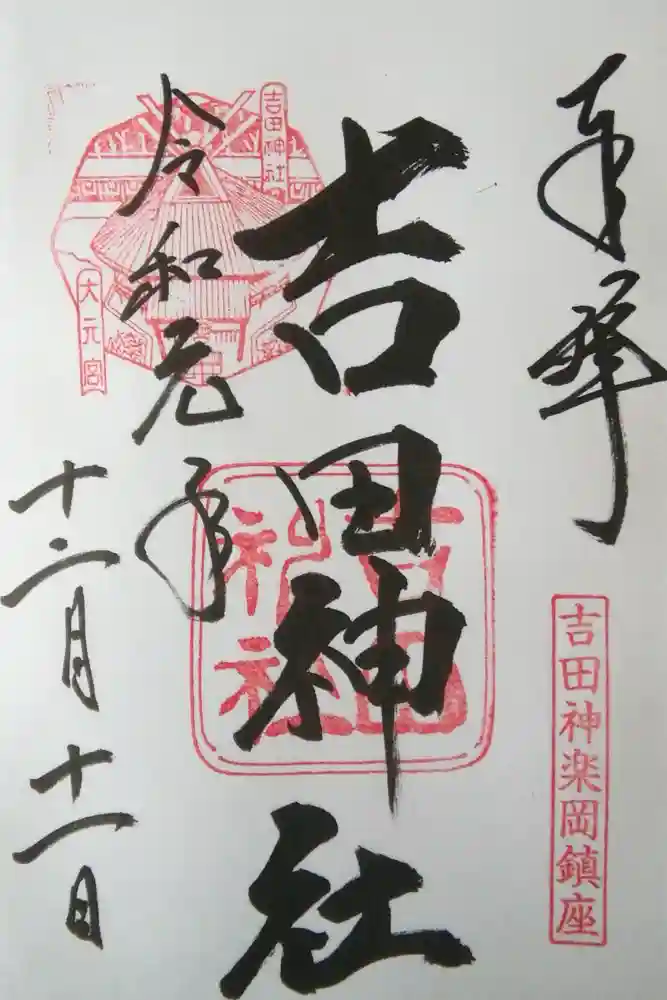 奉拝
吉田神楽岡鎮座
吉田神社
吉田神社
吉田神社
大元宮
令和元年
十二月十一日